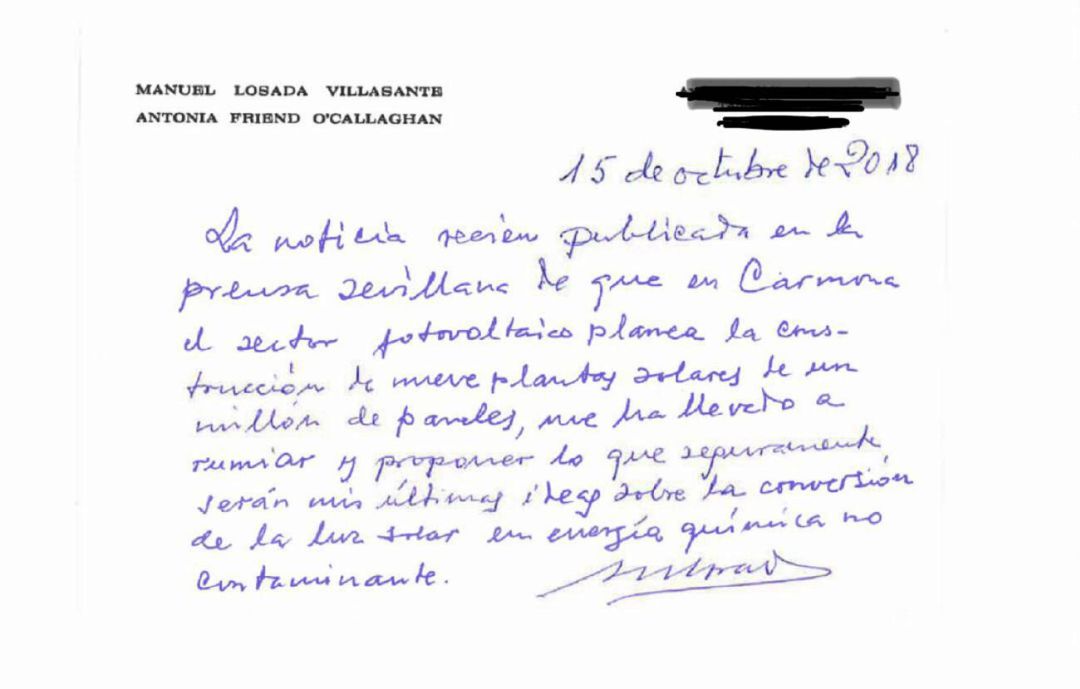 MANUEL LOSADA VILLASANTE
ANTONIA FRIEND O'CALLAGHAN
15 de octubre de 2018
La noticia recien publicada en la
prensa sevillana de que en Carmona
el sector fotovoltaico planea la cons-
trucción de nueve plantas solares de un
millón de paneles, me ha llevado a
rumiar y proponer lo que seguramente
serán mis últimas ideas sobre la conversión
de la luz solar en energía química no
contaminante.